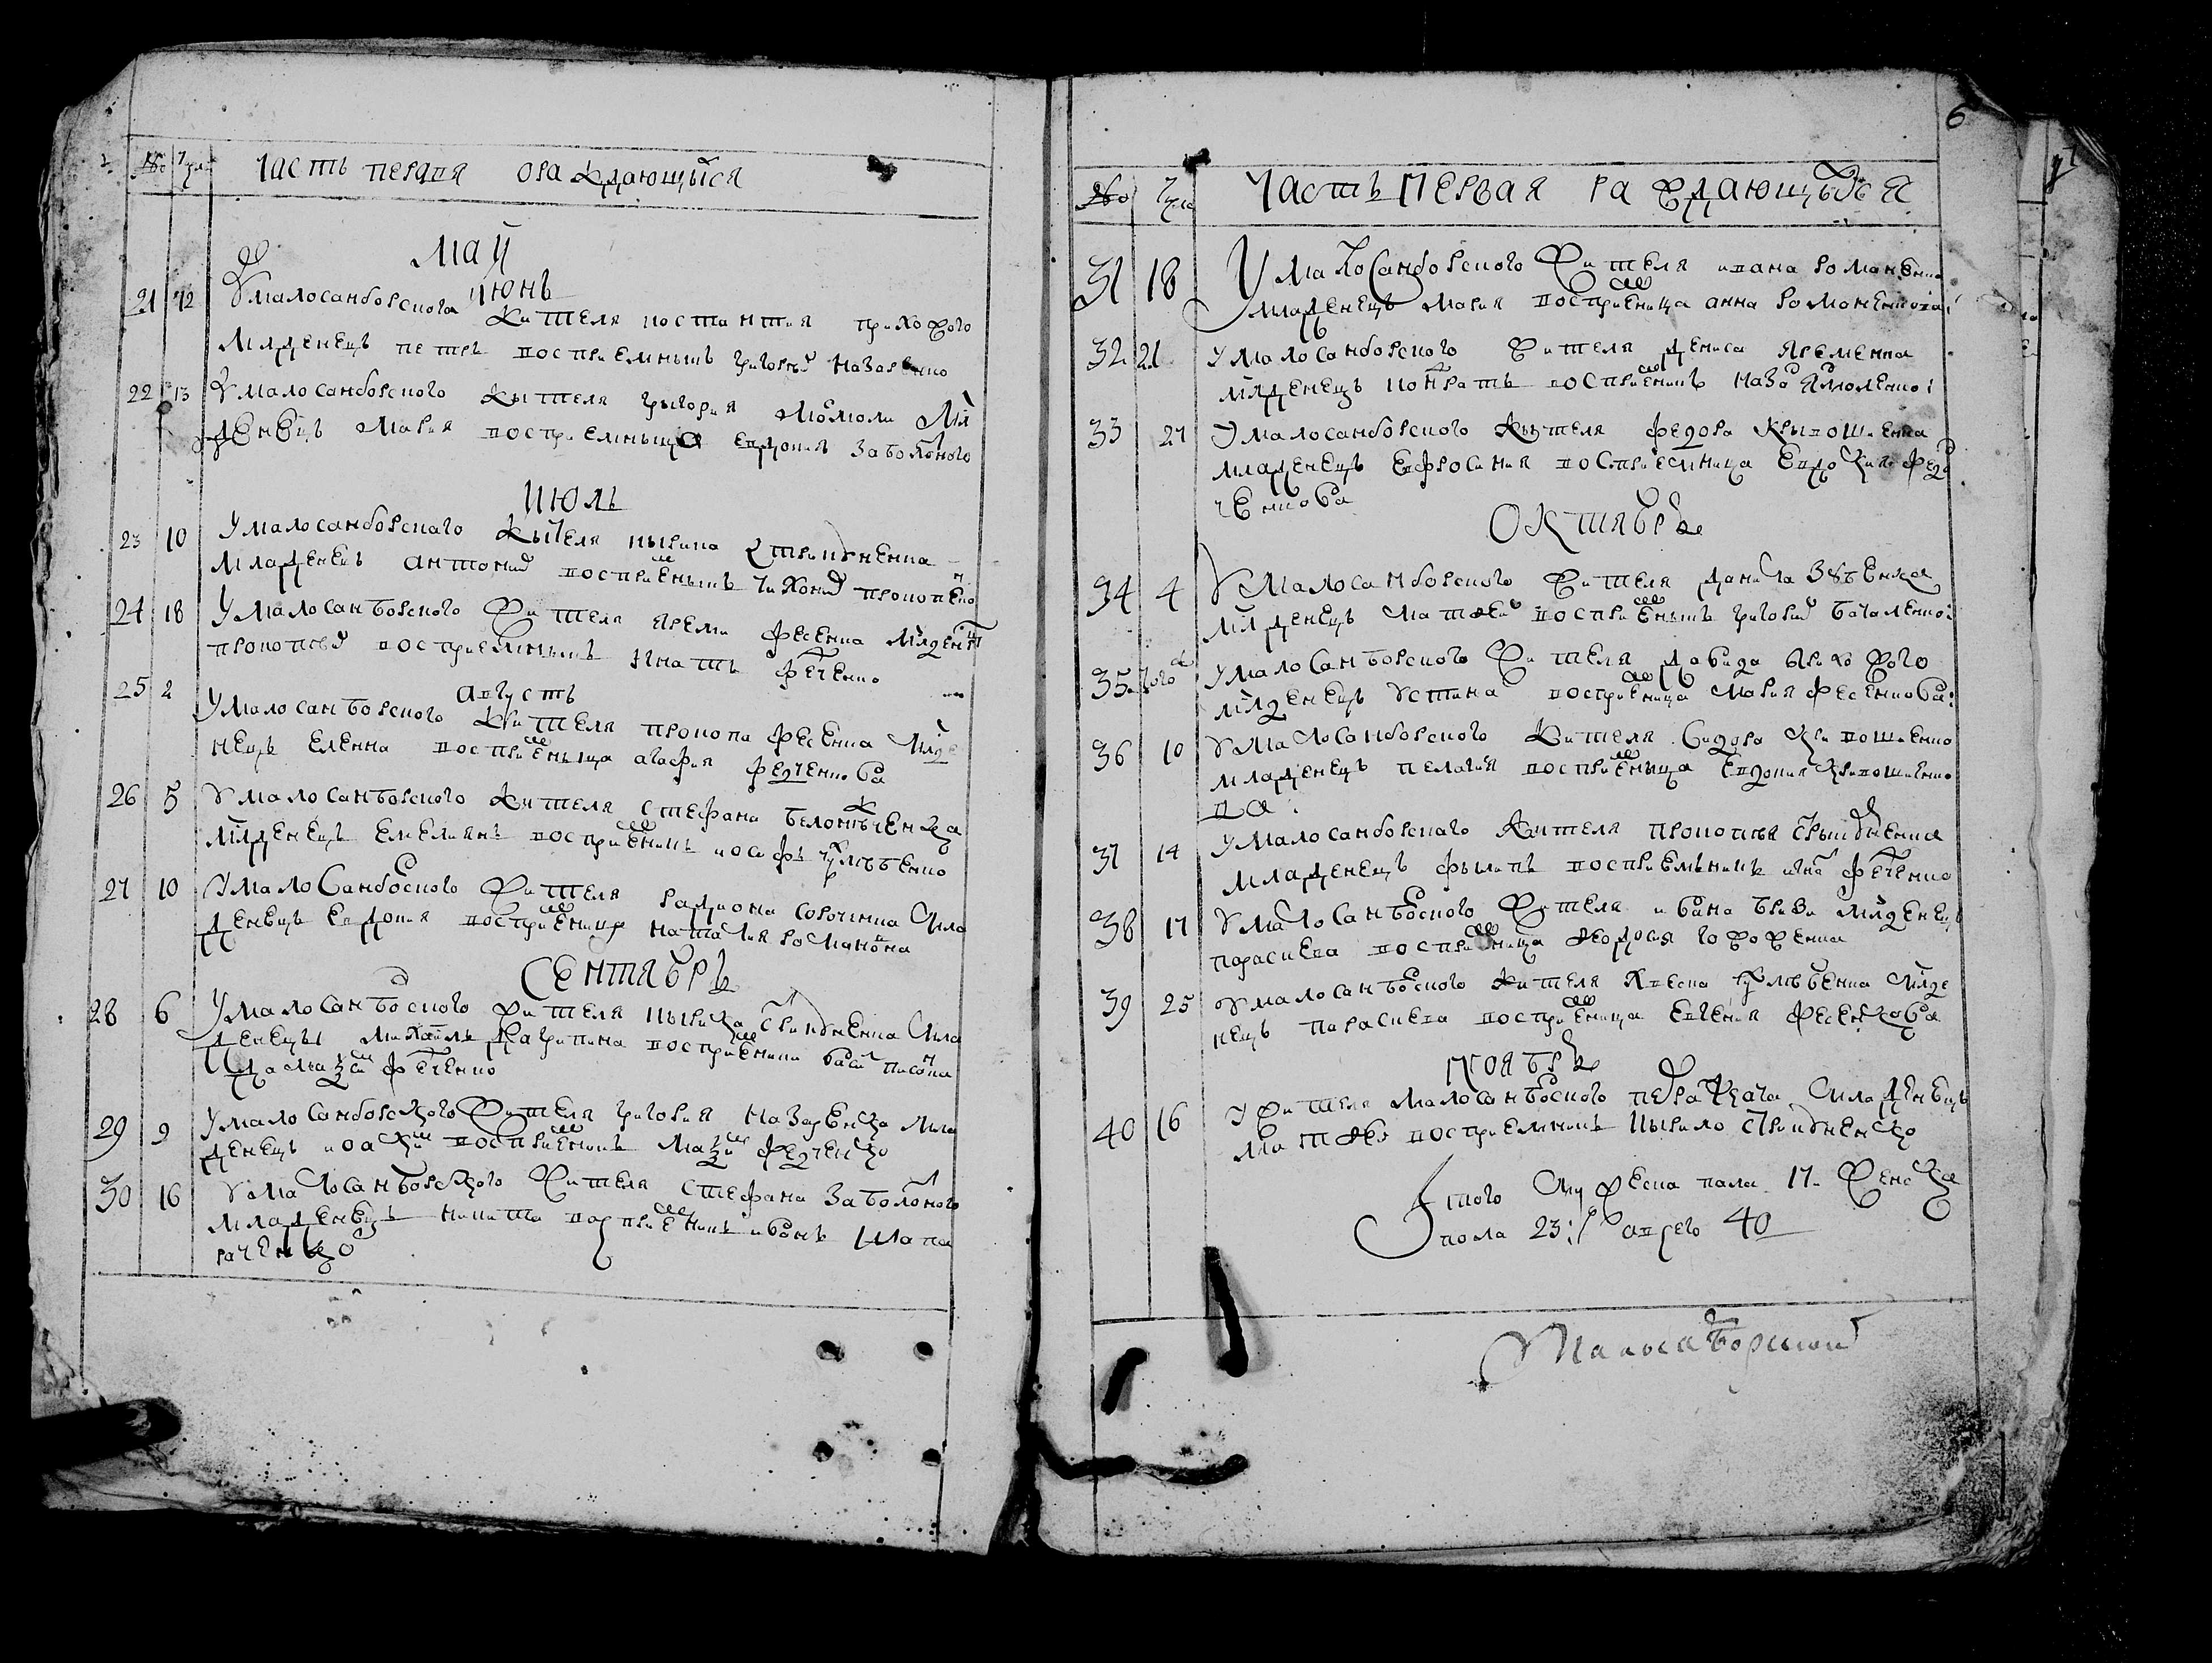 № Число Часть первая о раждающыхся
Май
Июнь
21 12 У малосамборского жителя костантия прихожого
младенецъ петръ восприемныкъ григорий Назаренко
22 13 У малосамборского жытеля грыгория мла
денецъ Мария восприемныца евдокия Заболоного
Июль
23 10 У малосамборского жытеля кырила Стрибненка
младенецъ антоний восприемныкъ тихоний прокопенко
24 18 У малосамборского жителя яреми фесенка младенец
прокопий восприемныкъ игнатъ федченко
августъ
25 2 У малосамборского жителя прокопа фесенка младе
нецъ еленна восприемныца агафия федченкова
26 5 У малосамборского жителя стефана
младенецъ емелиянъ восприемникъ иосифъ
27 10 У малосамборского жителя радиона сорочинка мла
денецъ евдокия восприемница наталия романовна
Сентябрь
28 6 У малосамборского жителя кырила стрибненка мла
денецы михаилъ агрипина восприемники
да мазим федченко
29 9 У малосамборского жителя григория Назаренка мла
денецъ иоаким восприемникъ мазим федченко
30 16 У малосамборского жителя стефана Заболоного
младенецъ никита восприемникъ иванъ Шапа
раченко
6
№ Число Часть Первая раждающыхся
31 18 У малосамборского жителя ивана романенка
младенецъ мария восприемница анна романенкова
32 21 У малосамборского жителя дениса яременка
младенецъ кондратъ восприемникъ
33 27 У малосамборского жителя федора кривошиенка
младенецъ евфросиния восприемница евдокия фед
ченкова
Октябрь
34 4 У малосамборского жителя данила Зубенка
младенецъ матфей восприемникъ григорий
35 того У малосамборского жителя давида прихожого
младенецъ устина восприемница мария фесенкова
36 10 У малосамборского жителя Сидора кривошиенко
младенецъ пелагия восприемница евдокия кривошиенко
ва
37 14 У малосамборского жителя прокопия стрыбненка
младенецъ филипъ восприемникъ игнат федченко
38 17 У малосамборского жителя ивана младенецъ
параскева восприемница феодосия
39 25 У малосамборского жителя младе
нецъ параскева восприемница евгения фесенкова
Ноябрь
40 16 У жителя малосамборского петра ткача младенецъ
матфей восприемникъ кырило стрибненко
Итого Мужеска пола 17 Женска
пола 23: всего 40